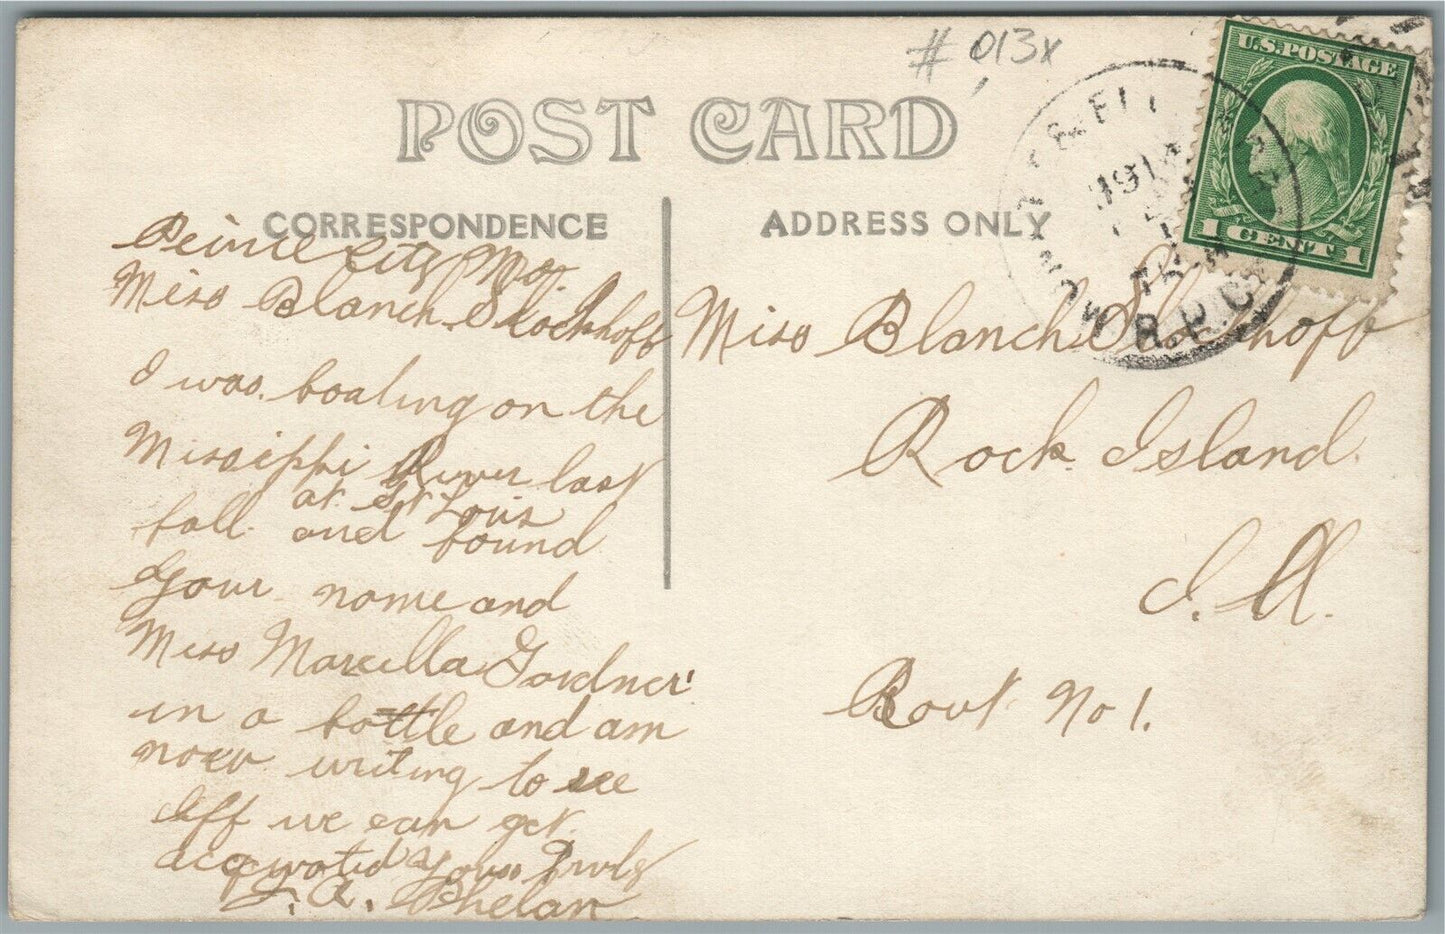 # 013x
POST CARD
U.S. POSTAGE
1 CENT 1
CORRESPONDENCE
ADDRESS ONLY
191
R.P.O.
Peirce City Mo.
Miss Blanch Stockhoff
I was boating on the
Missippi River last
at St Louis
fall and found
your name and
Miss Marcella Gardner
in a bottle and am
now writing to see
iff we can get
acqwated Yours Truly
A. Phelan
Miss Blanch Stockhoff
Rock Island
Ill.
Rout No 1.